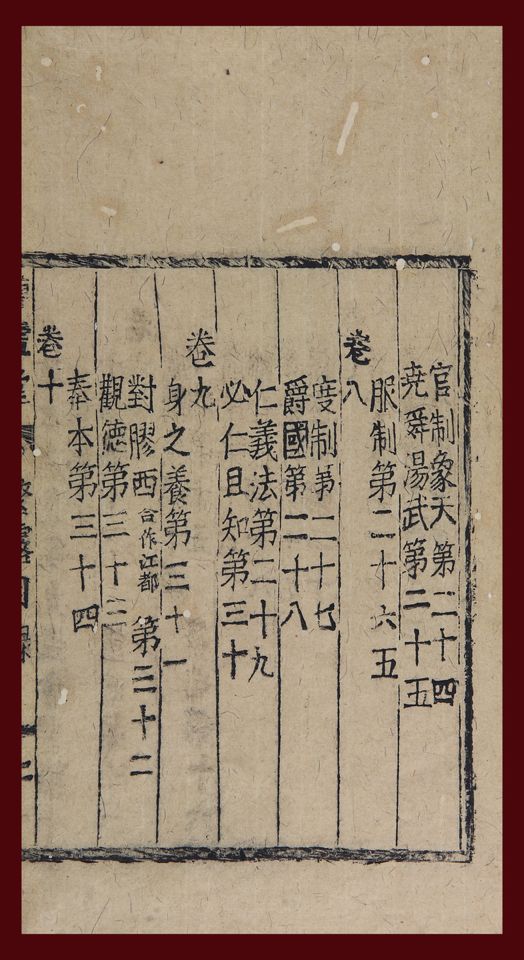 官制象天第二十四
堯舜湯武第二十五
服制第二十六五
卷八
度制第二十七
爵國第二十八
仁義法第二十九
必仁且知第三十
卷九
身之養第三十一
對膠西合作江都第三十二
觀徳第三十三
奉本第三十四
卷十